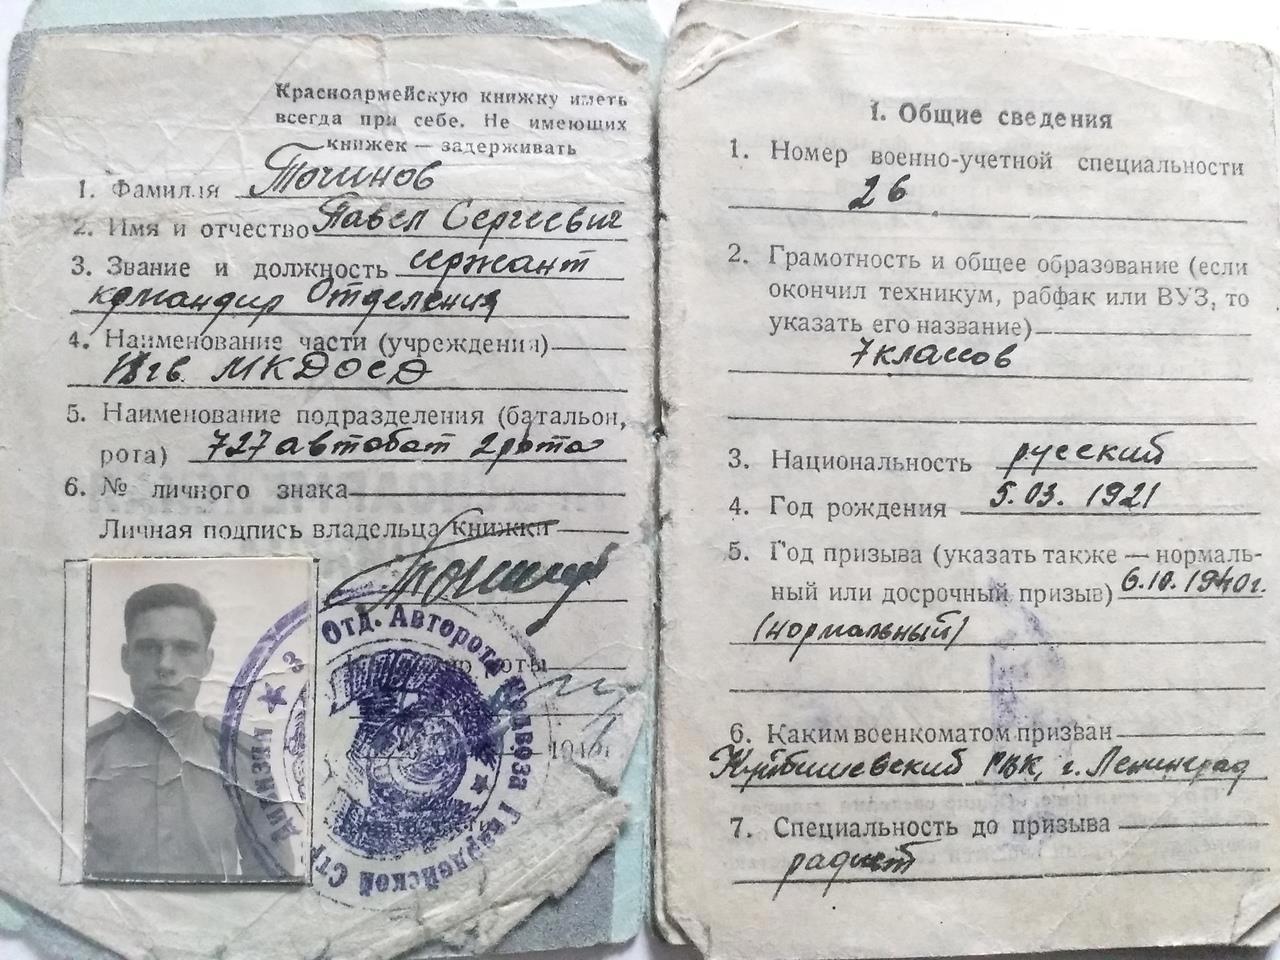 Красноармейскую книжку иметь
всегда при себе. Не имеющих
книжек — задерживать
1. Фамилия Точинов
2. Имя и отчество Павел Сергеевич
3. Звание и должность сержант
командир Отделения
4. Наименование части (учреждения)
МКДОСД
5. Наименование подразделения (батальон,
рота) 727 автобат 2 рота
6. № личного знака
Личная подпись владельца книжки
роты
194
Отд. Авторота подвоза Гвардейской
I. Общие сведения
1. Номер военно-учетной специальности
26
2. Грамотность и общее образование (если
окончил техникум, рабфак или ВУЗ, то
указать его название)
7 классов
3. Национальность русский
4. Год рождения 5.03. 1921
5. Год призыва (указать также — нормаль-
ный или досрочный призыв) 6.10.1940г.
(нормальный)
6. Каким военкоматом призван
Куйбышевский РВК, г. Ленинград
7. Специальность до призыва
радист